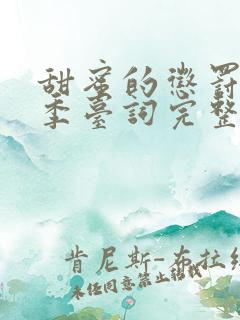 甜蜜的懲罰
季臺詞完整
肯尼斯-布拉
未經同意禁止轉載